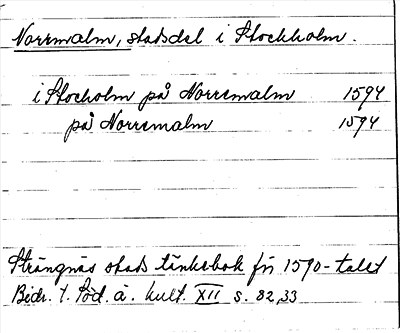 Norrmalm, stadsdel i Stockholm.
i Stocholm på Norremalm 1594
på Norremalm 1594
Strängnäs stads tänkebok fr 1590-talet
Bidr. t. Söd. ä. kult. XII s. 32,33